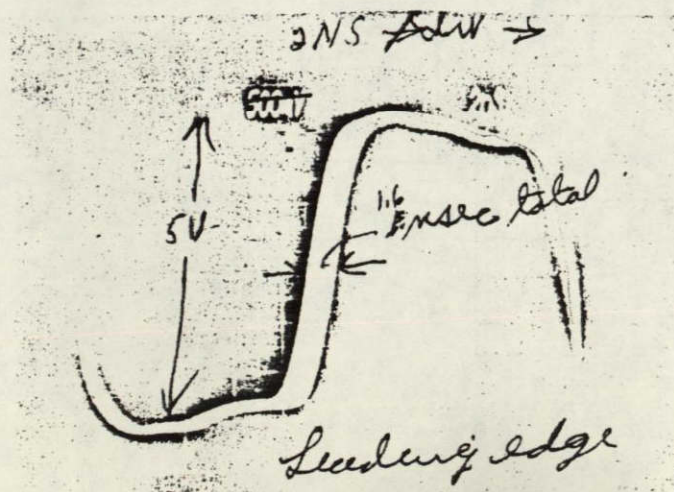 2NS /div →
500mV
5V
1.6 nsec total
Leading edge